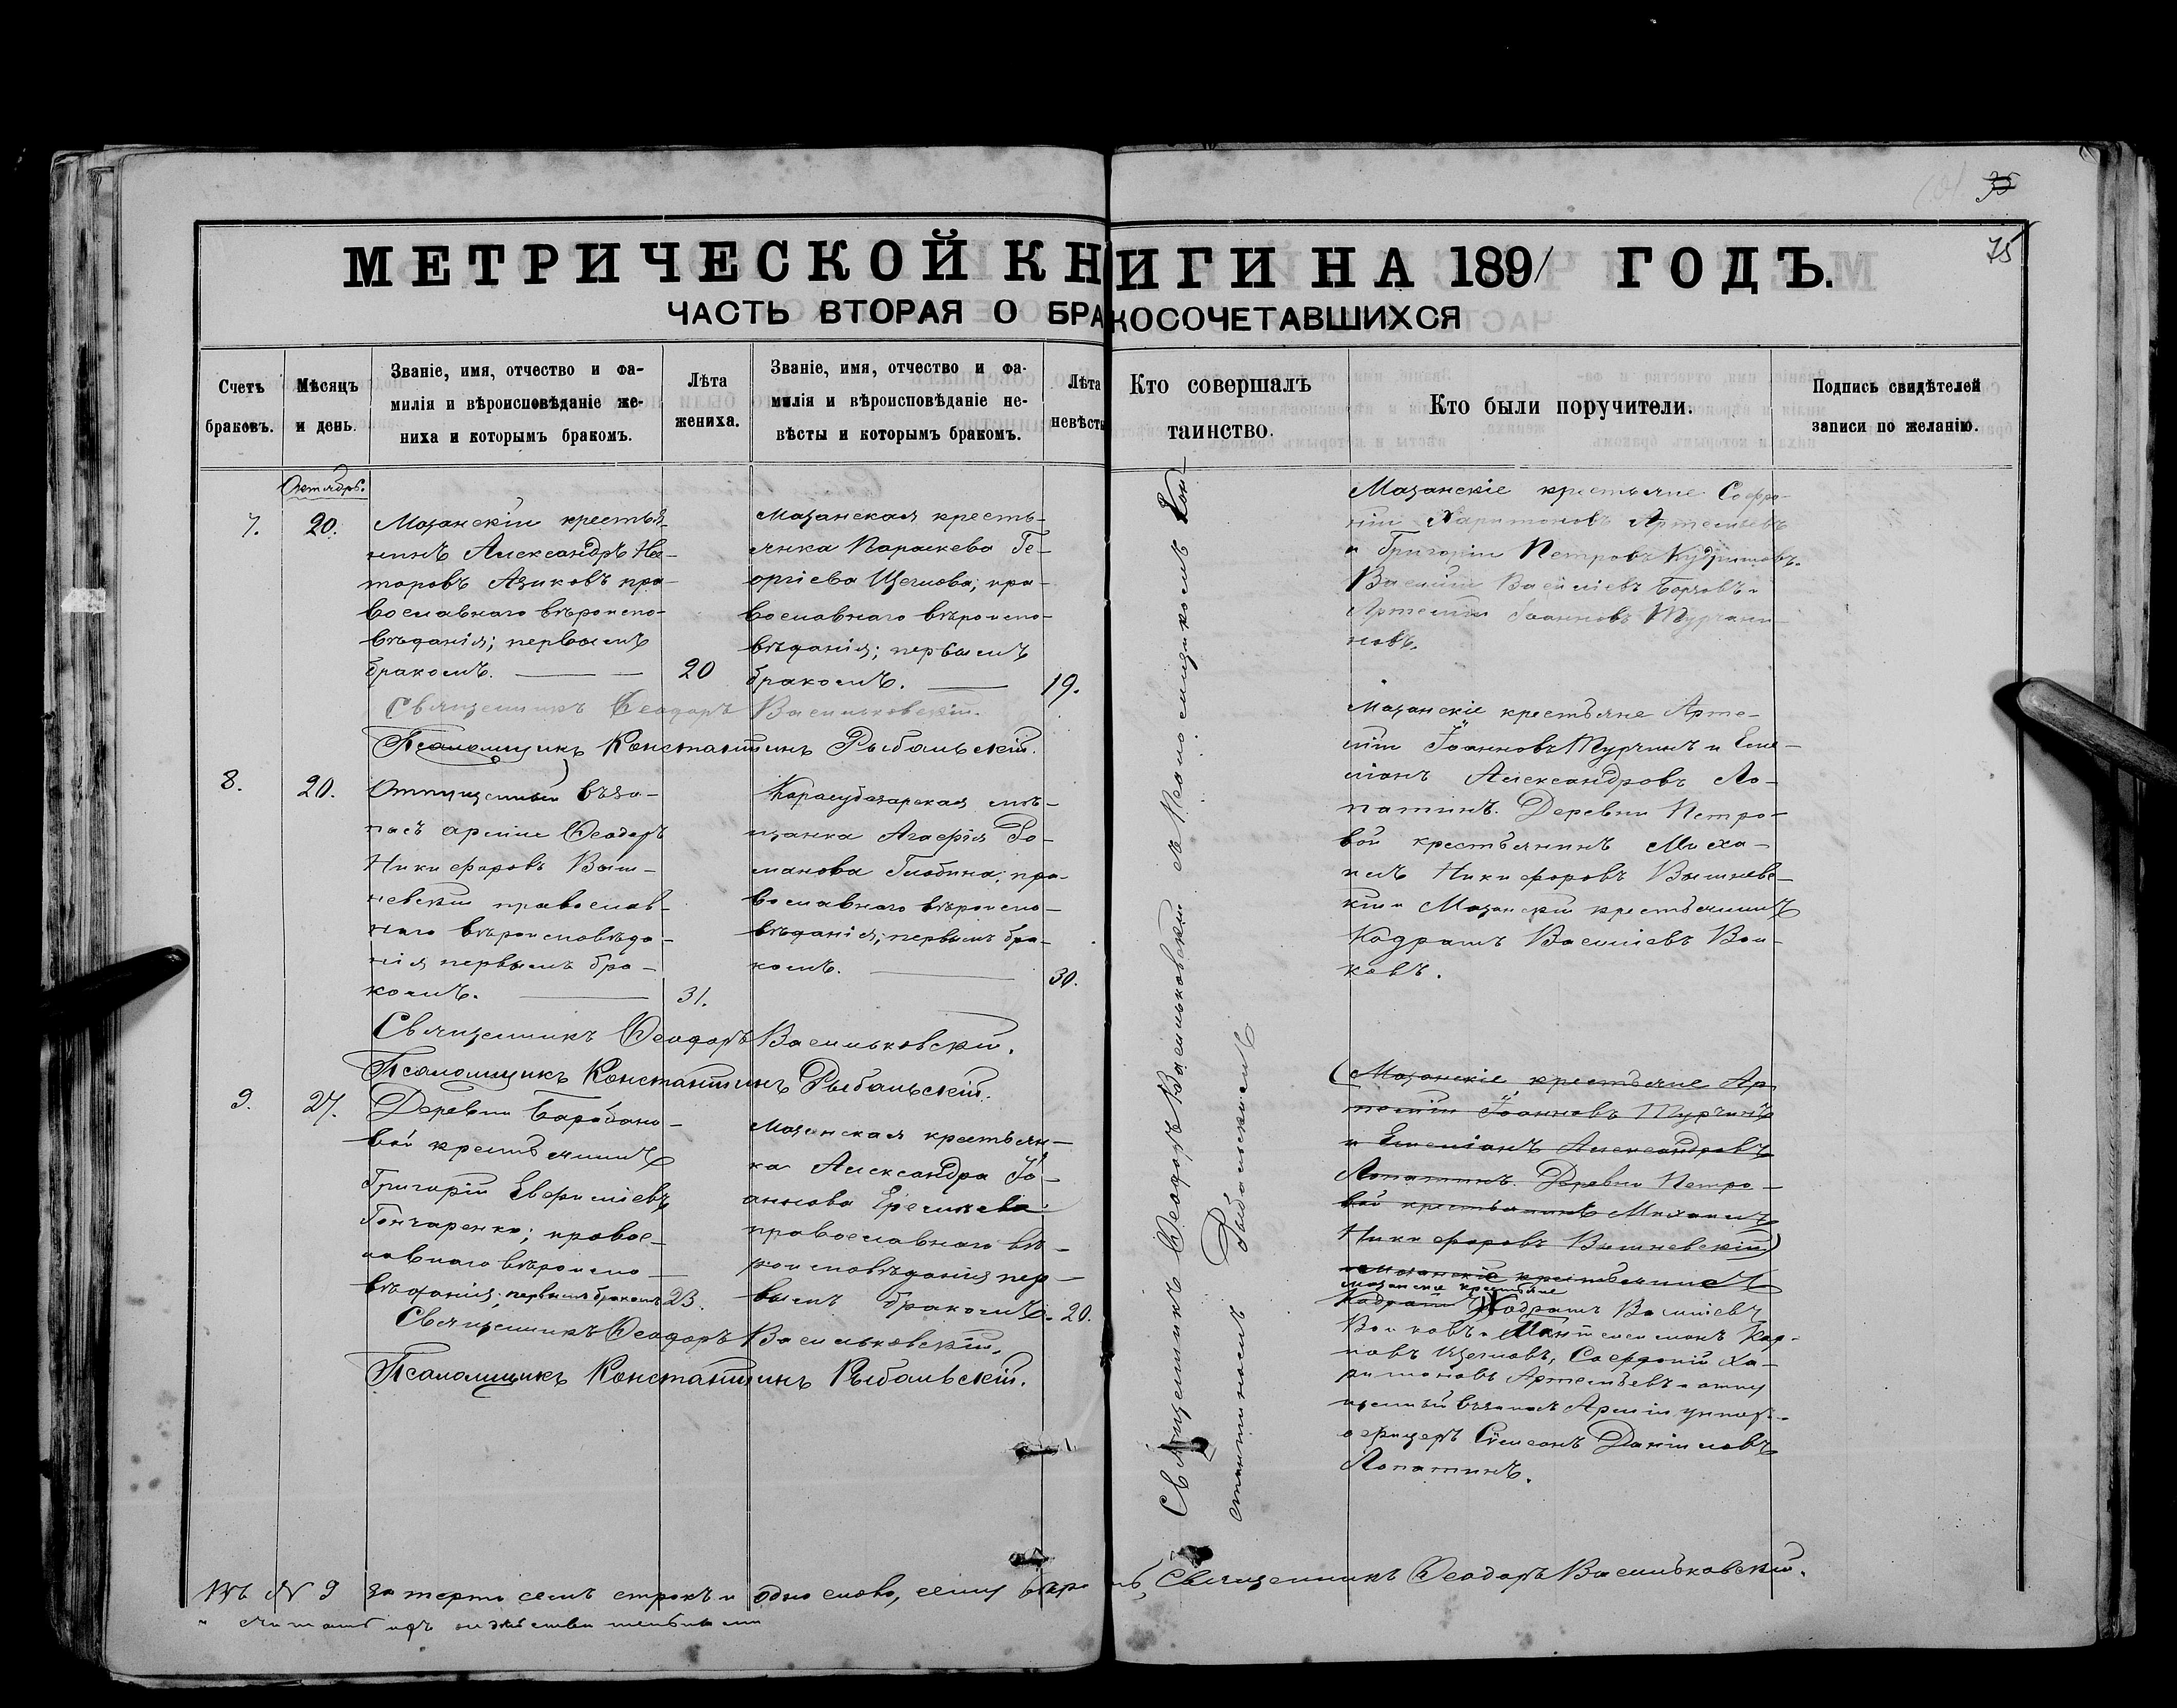 35
75
МЕТРИЧЕСКОЙ КНИГИ НА 1891 ГОДЪ.
ЧАСТЬ ВТОРАЯ О БРАКОСОЧЕТАВШИХСЯ
Счетъ
браковъ.
Мѣсяцъ
и день.
Званіе, имя, отчество и фа-
милія и вѣроисповѣданіе же-
ниха и которымъ бракомъ.
Лѣта
жениха.
Званіе, имя, отчество и фа-
милія и вѣроисповѣданіе не-
вѣсты и которымъ бракомъ.
Лѣта
невѣсты
Кто совершалъ
таинство.
Кто были поручители.
Подпись свидѣтелей
записи по желанію.
Октябрь.
7.
20.
Мазанскій крестья-
нинъ Александръ Нес-
торовъ Азиковъ пра-
вославнаго вѣроиспо-
вѣданія; первымъ
бракомъ.
20
Мазанская кресть-
янка Параскева Ге-
оргіева Щеглова; пра-
вославнаго вѣроиспо-
вѣданія; первымъ
бракомъ.
19.
Мазанскіе крестьяне Софро-
ній Харитоновъ Артемьевъ
и Григорій Петровъ
Василій Василіевъ и
Артемій Іоанновъ Турчани-
новъ.
Священникъ Ѳеодоръ Васильковскій.
Псаломщикъ Константинъ Рыбальскій.
8.
20.
Отпущенный въ за-
пасъ арміи Ѳеодоръ
Никифоровъ Выш-
невскій православ-
наго вѣроисповѣда-
нія первымъ бра-
комъ.
31.
Карасубазарская мѣ-
щанка Агафія Ро-
манова Глобина; пра-
вославнаго вѣроиспо-
вѣданія; первымъ бра-
комъ.
30.
Мазанскіе крестьяне Арте-
мій Іоанновъ Турчинъ и Еме-
ліанъ Александровъ Ло-
патинъ. Деревни Петро-
вой крестьянинъ Миха-
илъ Никифоровъ Вышневс-
кій и Мазанскій крестьянинъ
Кодратъ Василіевъ Вол-
ковъ.
Священникъ Ѳеодоръ Васильковскій.
Псаломщикъ Константинъ Рыбальскій.
9.
27.
Деревни Барабано-
вой крестьянинъ
Григорій
Гончаренко; правос-
лавнаго вѣроиспо-
вѣданія; первымъ бракомъ
23.
Мазанская крестьян-
ка Александра Іо-
аннова
православнаго вѣ-
роисповѣданія пер-
вымъ бракомъ.
20.
Мазанскіе крестьяне Ар
темій Іоанновъ Турчинъ
и Емеліанъ Александровъ
Лопатинъ. Деревни Петро-
вой крестьянинъ Михаилъ
Никифоровъ Вышневскій
и Мазанскіе крестьянинъ
мазанскіе крестьяне
Кодратъ Кодратъ Василіевъ
Волковъ и Пантелеимонъ Кар-
повъ Щегловъ, Софроній Ха-
ритоновъ Артемьевъ и отпу
щенный въ запасъ Арміи унтеръ-
офицеръ Симеонъ Даніиловъ
Лопатинъ.
Священникъ Ѳеодоръ Васильковскій.
Псаломщикъ Константинъ Рыбальскій.
Священникъ Ѳеодоръ Васильковскій съ Псаломщикомъ Кон-
стантиномъ Рыбальскимъ
Въ № 9 затерто семь строкъ и одно слово, сему вѣрить, Священникъ Ѳеодоръ Васильковскій.